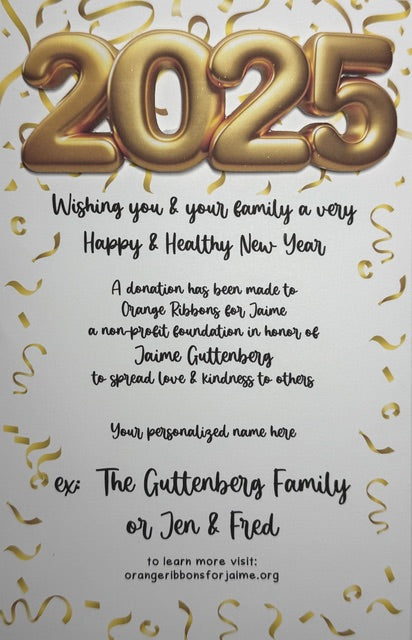 2025
Wishing you & your family a very
Happy & Healthy New Year
A donation has been made to
Orange Ribbons for Jaime
a non-profit foundation in honor of
Jaime Guttenberg
to spread love & kindness to others
Your personalized name here
ex: The Guttenberg Family
or Jen & Fred
to learn more visit:
orangeribbonsforjaime.org